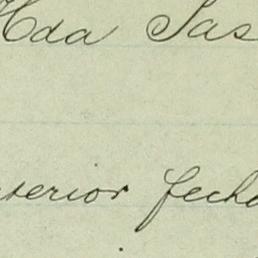 Hda Las
terior fecha